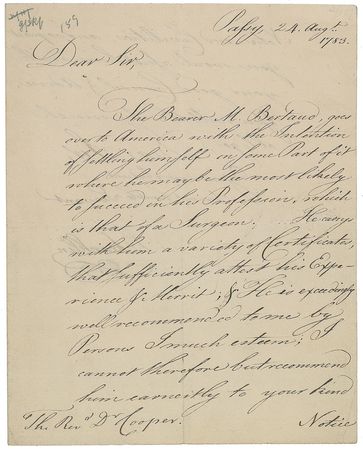 189
Passy 24 Augt.
1783.
Dear Sir,
The Bearer M. Bertaud, goes
over to America with the Intention
of settling himself in some Part of it
where he may be the most likely
to succeed in his Profession, which
is that of a Surgeon; He carrys
with him a variety of Certificates
that sufficiently attest his Expe-
rience & Merrit; & He is exceedingly
well recommended to me by
Persons I much esteem; I
cannot therefore but recommend
him earnestly to your kind
The Revd. Dr Cooper.
Notice